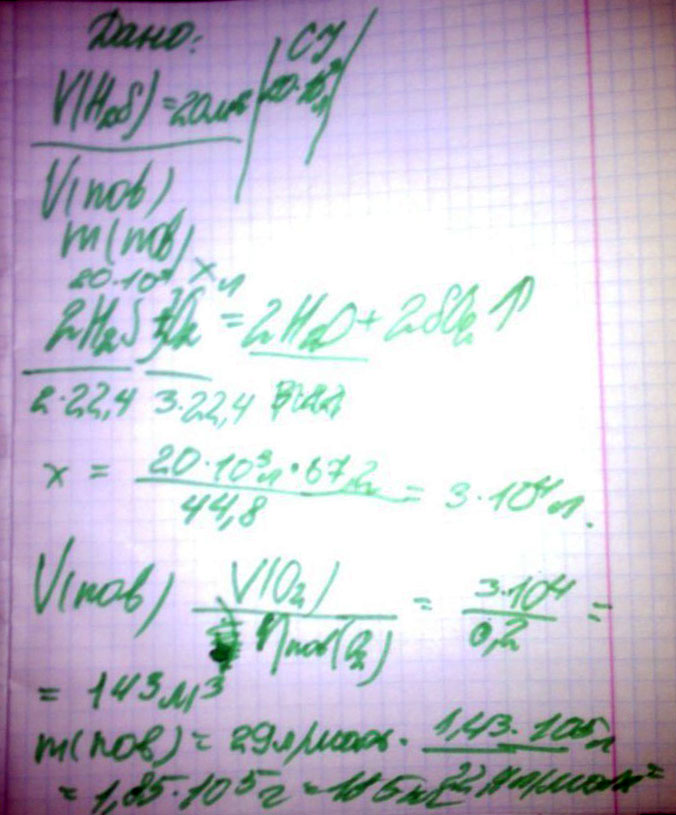 Дано: СИ
V(H₂S) = 20 м³ 20·10³ л
V(пов)
m(пов)
20·10³ x л
2H₂S + 3O₂ = 2H₂O + 2SO₂ ↑
2·22,4 3·22,4
x = 20·10³ л · 67,2 / 44,8 = 3·10⁴ л.
V(пов) V(O₂) / η пов(O₂) = 3·10⁴ / 0,2 =
= 143 м³
m(пов) = 29 г/моль · 1,43·10⁵ л / 22,4 л/моль =
= 1,85·10⁵ г = 185 кг